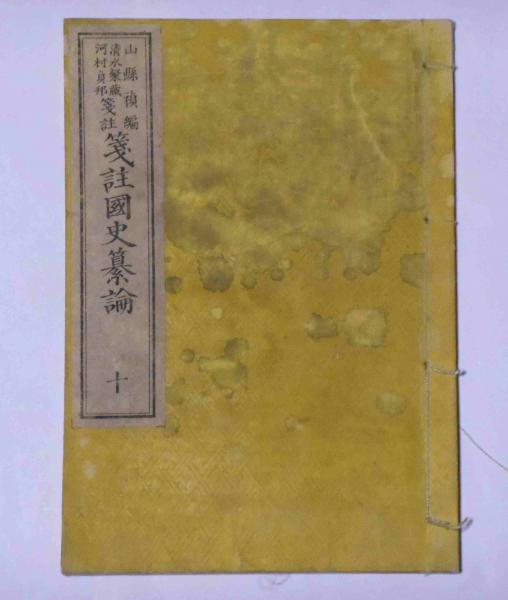 山縣禎編
清水槃藏
河村貞邦
箋註
箋註國史纂論
十